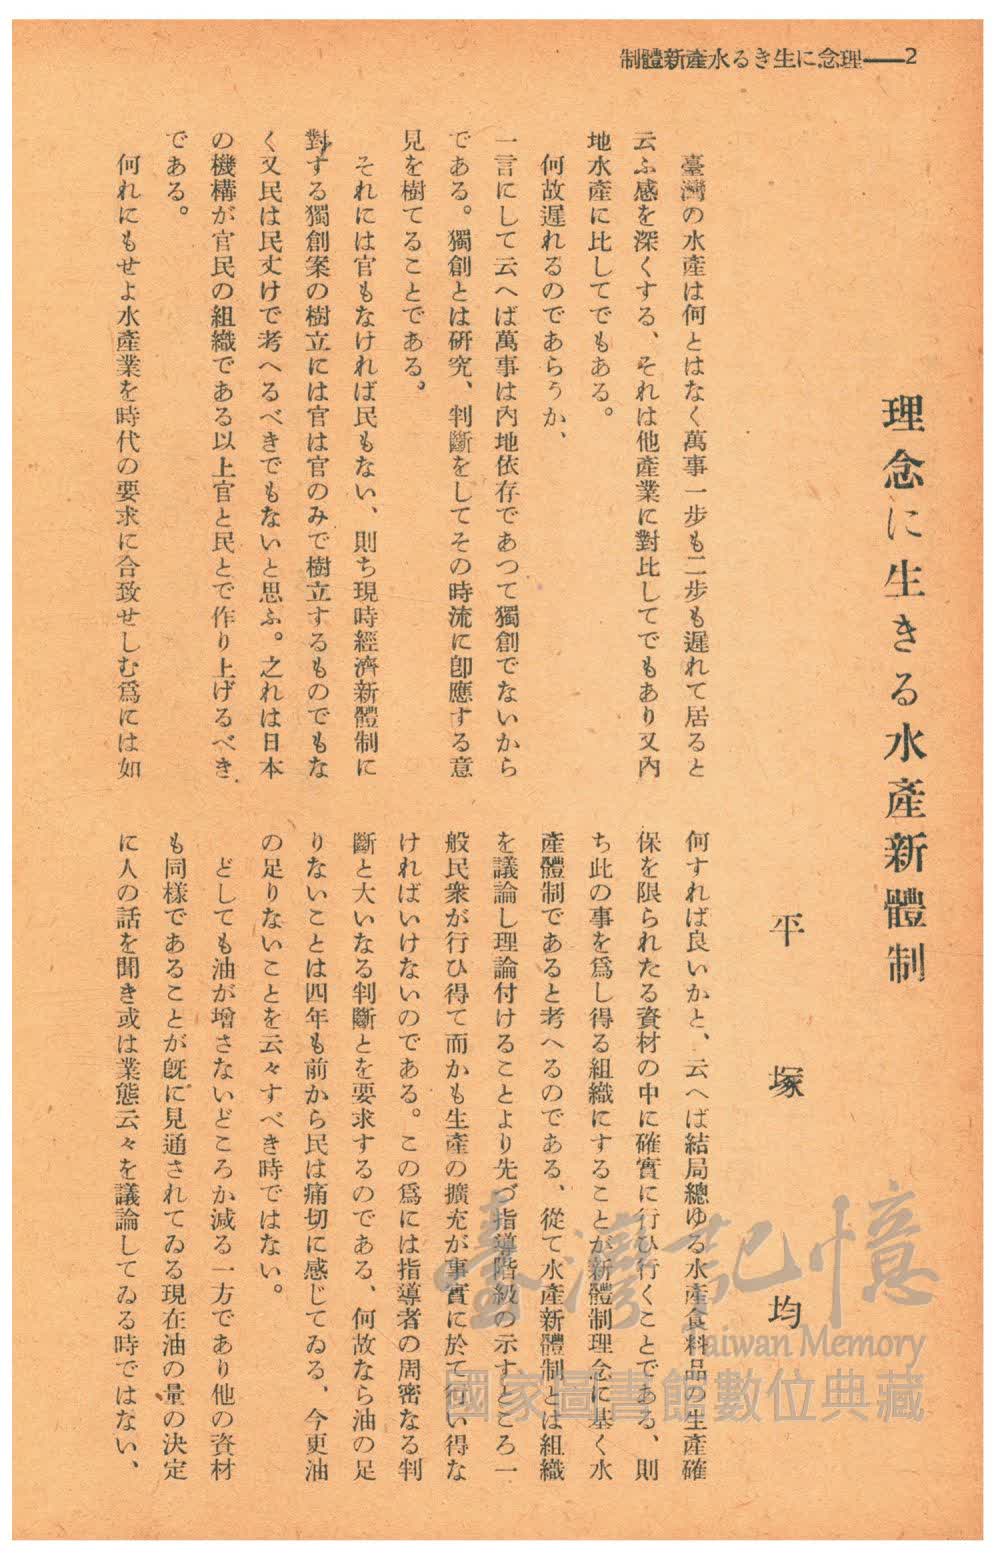 2——理念に生きる水產新體制
理念に生きる水產新體制
平塚均
臺灣の水產は何とはなく萬事一步も二步も遲れて居ると
云ふ感を深くする、それは他產業に對比してでもあり又內
地水產に比してでもある。
何故遲れるのであらうか、
一言にして云へば萬事は內地依存であつて獨創でないから
である。獨創とは硏究、判斷をしてその時流に卽應する意
見を樹てることである。
それには官もなければ民もない、則ち現時經濟新體制に
對する獨創案の樹立には官は官のみで樹立するものでもな
く又民は民丈けで考へるべきでもないと思ふ。之れは日本
の機構が官民の組織である以上官と民とで作り上げるべき
である。
何れにもせよ水產業を時代の要求に合致せしむ爲には如
何すれば良いかと、云へば結局總ゆる水產食料品の生產確
保を限られたる資材の中に確實に行ひ行くことである、則
ち此の事を爲し得る組織にすることが新體制理念に基く水
產體制であると考へるのである、從て水產新體制とは組織
を議論し理論付けることより先づ指導階級の示すところ一
般民衆が行ひ得て而かも生產の擴充が事實に於て行い得な
ければいけないのである。この爲には指導者の周密なる判
斷と大いなる判斷とを要求するのである、何故なら油の足
りないことは四年も前から民は痛切に感じてゐる、今更油
の足りないことを云々すべき時ではない。
どしても油が增さないどころか減る一方であり他の資材
も同樣であることが旣に見通されてゐる現在油の量の決定
に人の話を聞き或は業態云々を議論してゐる時ではない、
臺灣記憶
Taiwan Memory
國家圖書館數位典藏